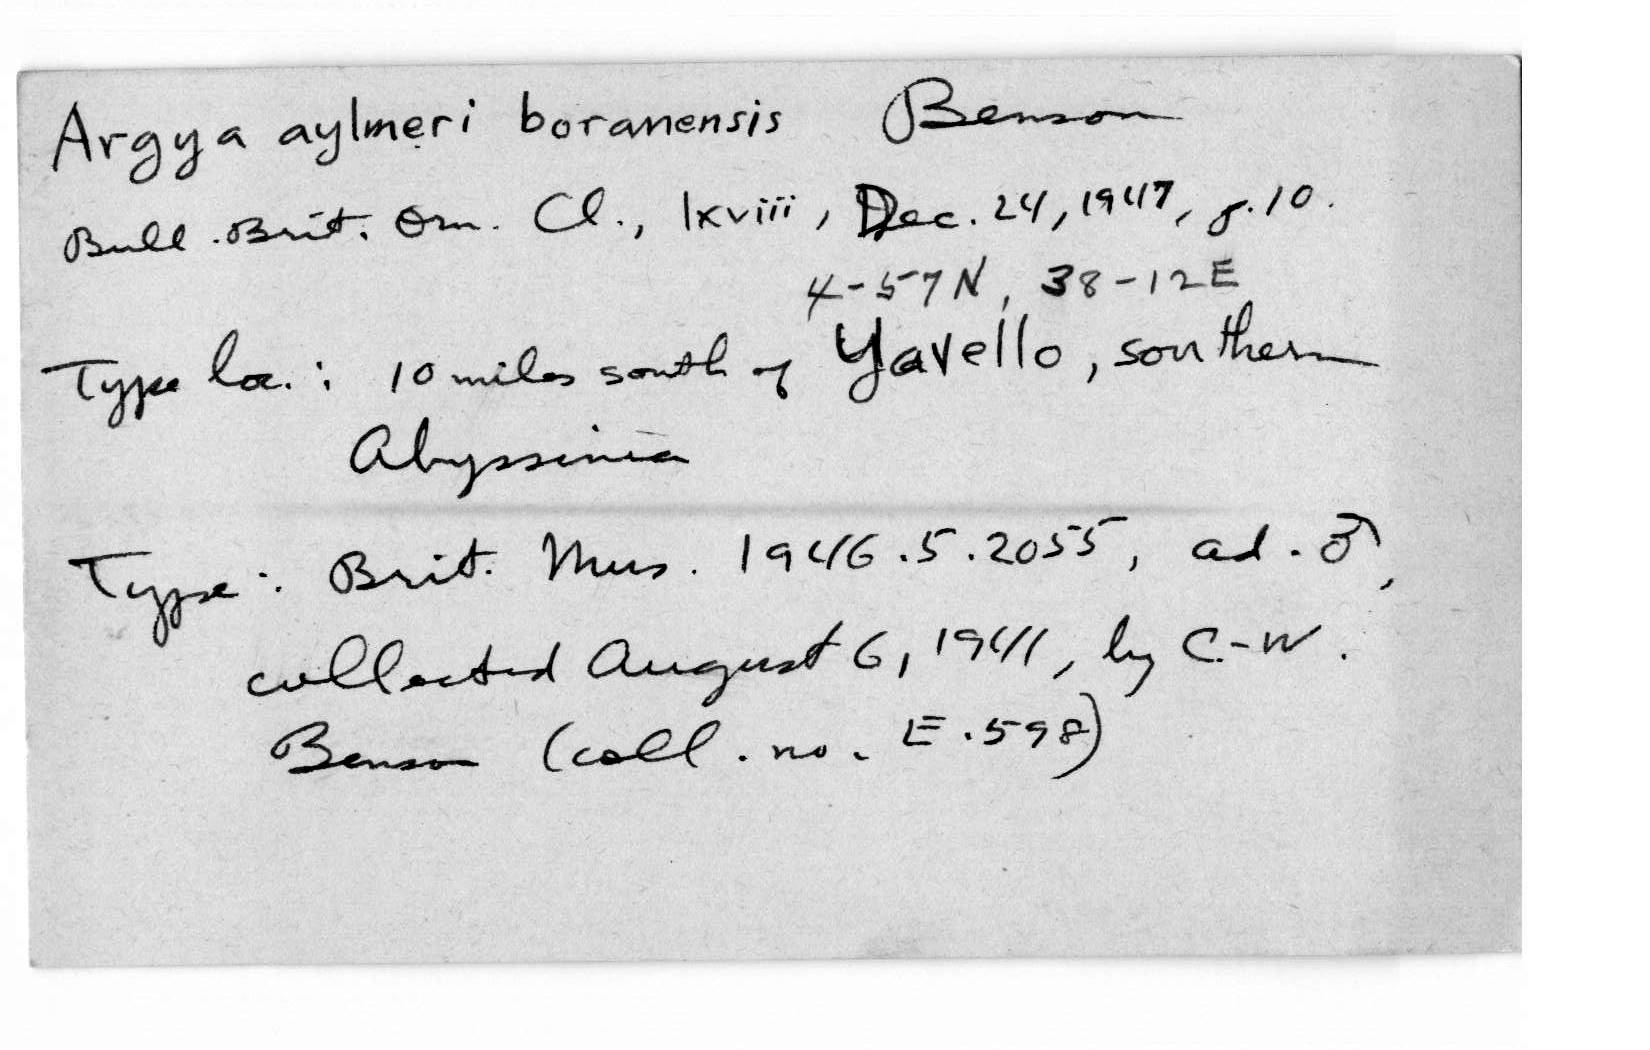 Argya aylmeri boranensis Benson
Bull. Brit. Orn. Cl., lxviii, Dec. 24, 1947, p. 10.
4-57N, 38-12E
Type loc.: 10 miles south of Yavello, southern
Abyssinia
Type: Brit. Mus. 1946.5.2055, ad. ♂,
collected August 6, 1941, by C.W.
Benson (coll. no. E.598)